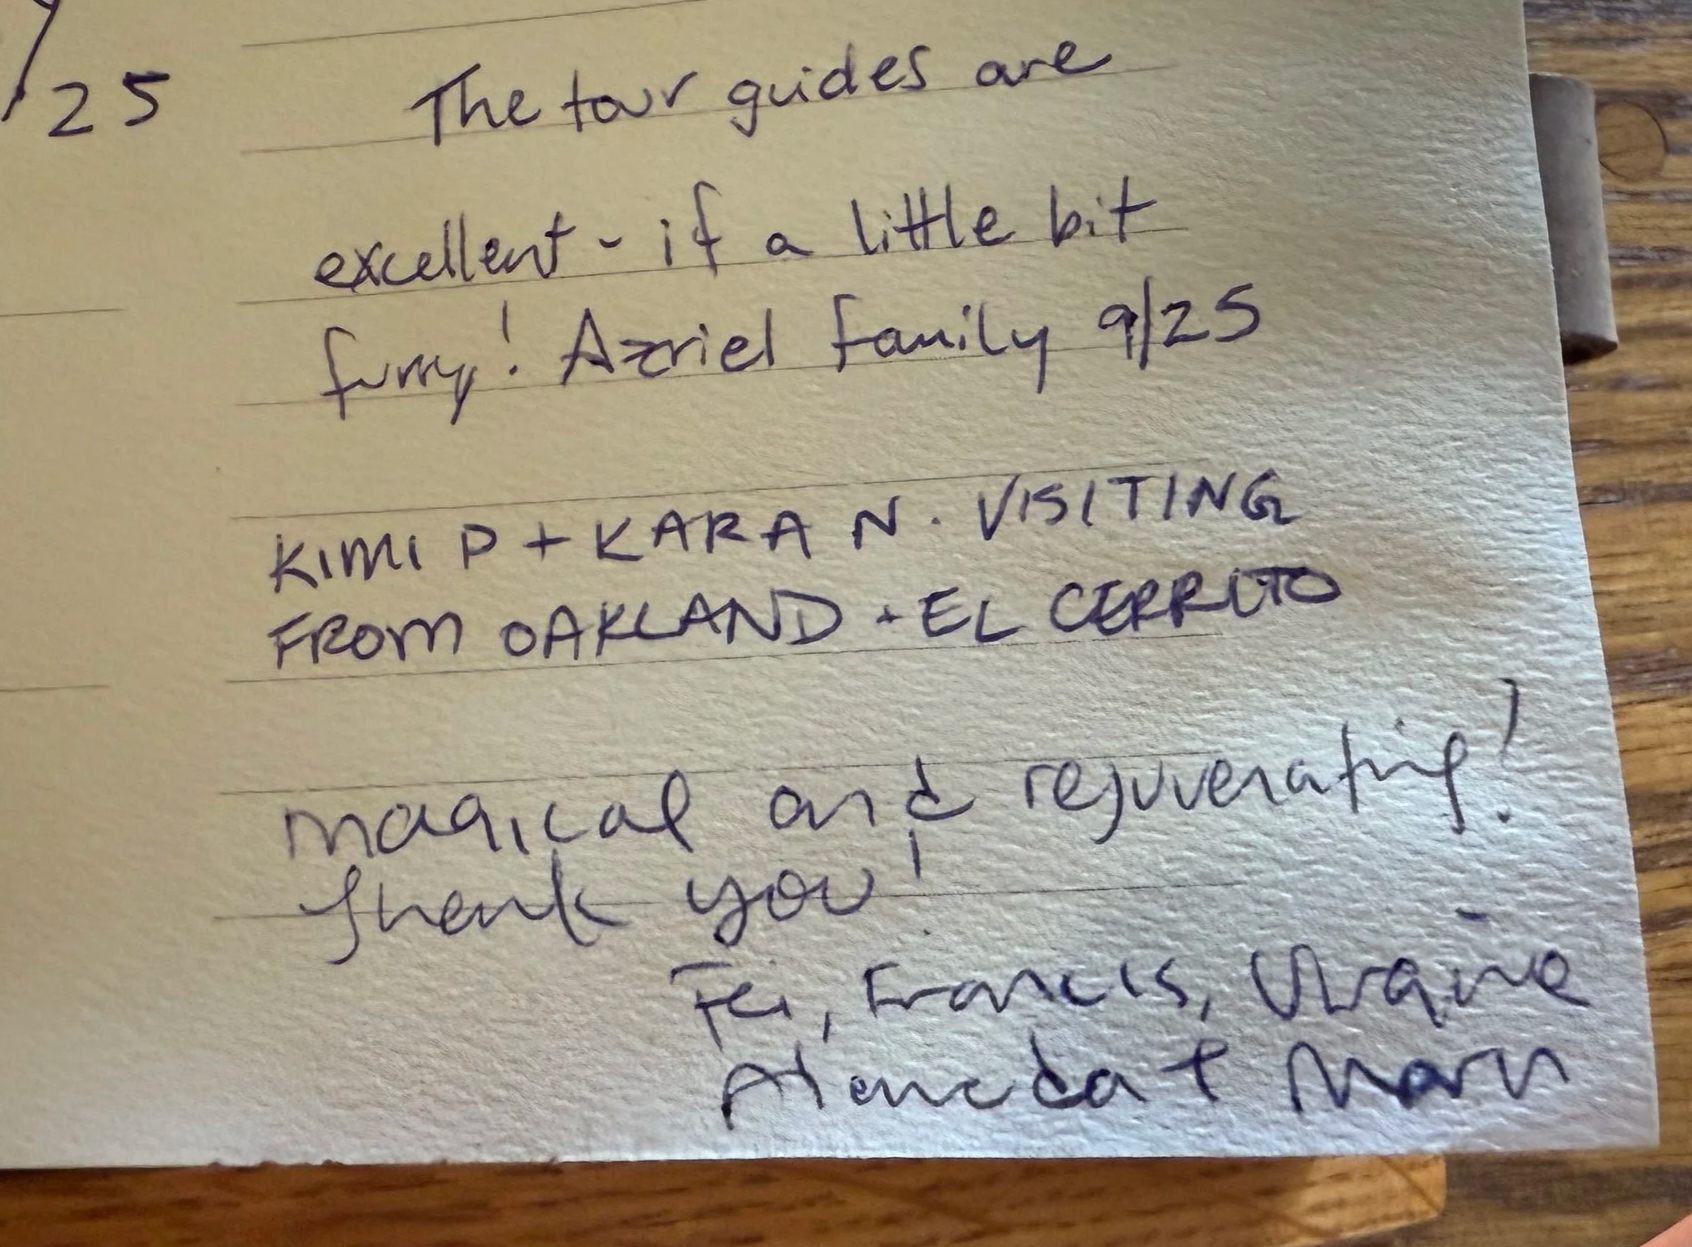 /25
The tour guides are
excellent - if a little bit
furry! Azriel family 9/25
KIMI P + KARA N. VISITING
FROM OAKLAND + EL CERRITO
magical and rejuvenating!
Thank you!
Fei, Francis, Virginie
Alameda + Marin